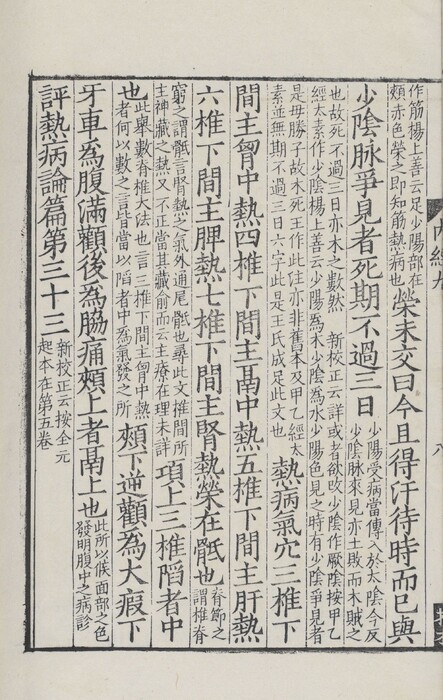 作筋楊上善云足少陽部在
頰赤色榮之即知筋熱病也
榮未交曰今且得汗待時而已與
少陰脉爭見者死期不過三日
少陽受病當傳入於太陰今反
少陰脉來見亦土敗而木賊之
也故死不過三日亦木之數然　新校正云詳或者欲攺少陰作厥陰按甲乙
經太素作少陰楊上善云少陽為木少陰為水少陽色見之時有少陰爭見者
是母勝子故木死王作此注亦非舊本及甲乙經太
素並無期不過三日六字此是王氏成足此文也
熱病氣穴三椎下
間主胷中熱四椎下間主鬲中熱五椎下間主肝熱
六椎下間主脾熱七椎下間主腎熱榮在骶也
脊節之
謂椎脊
窮之謂骶言腎熱之氣外通尾骶也尋此文椎間所
主神藏之熱又不正當其藏俞而云主療在理未詳
項上三椎陷者中
也
此舉數脊椎大法也言三椎下間主胷中熱
者何以數之言皆當以陷者中為氣發之所
頰下逆顴為大瘕下
牙車為腹滿顴後為脇痛頰上者鬲上也
此所以候面部之色
發明腹中之病診
評熱病論篇第三十三
新校正云按全元
起本在第五卷